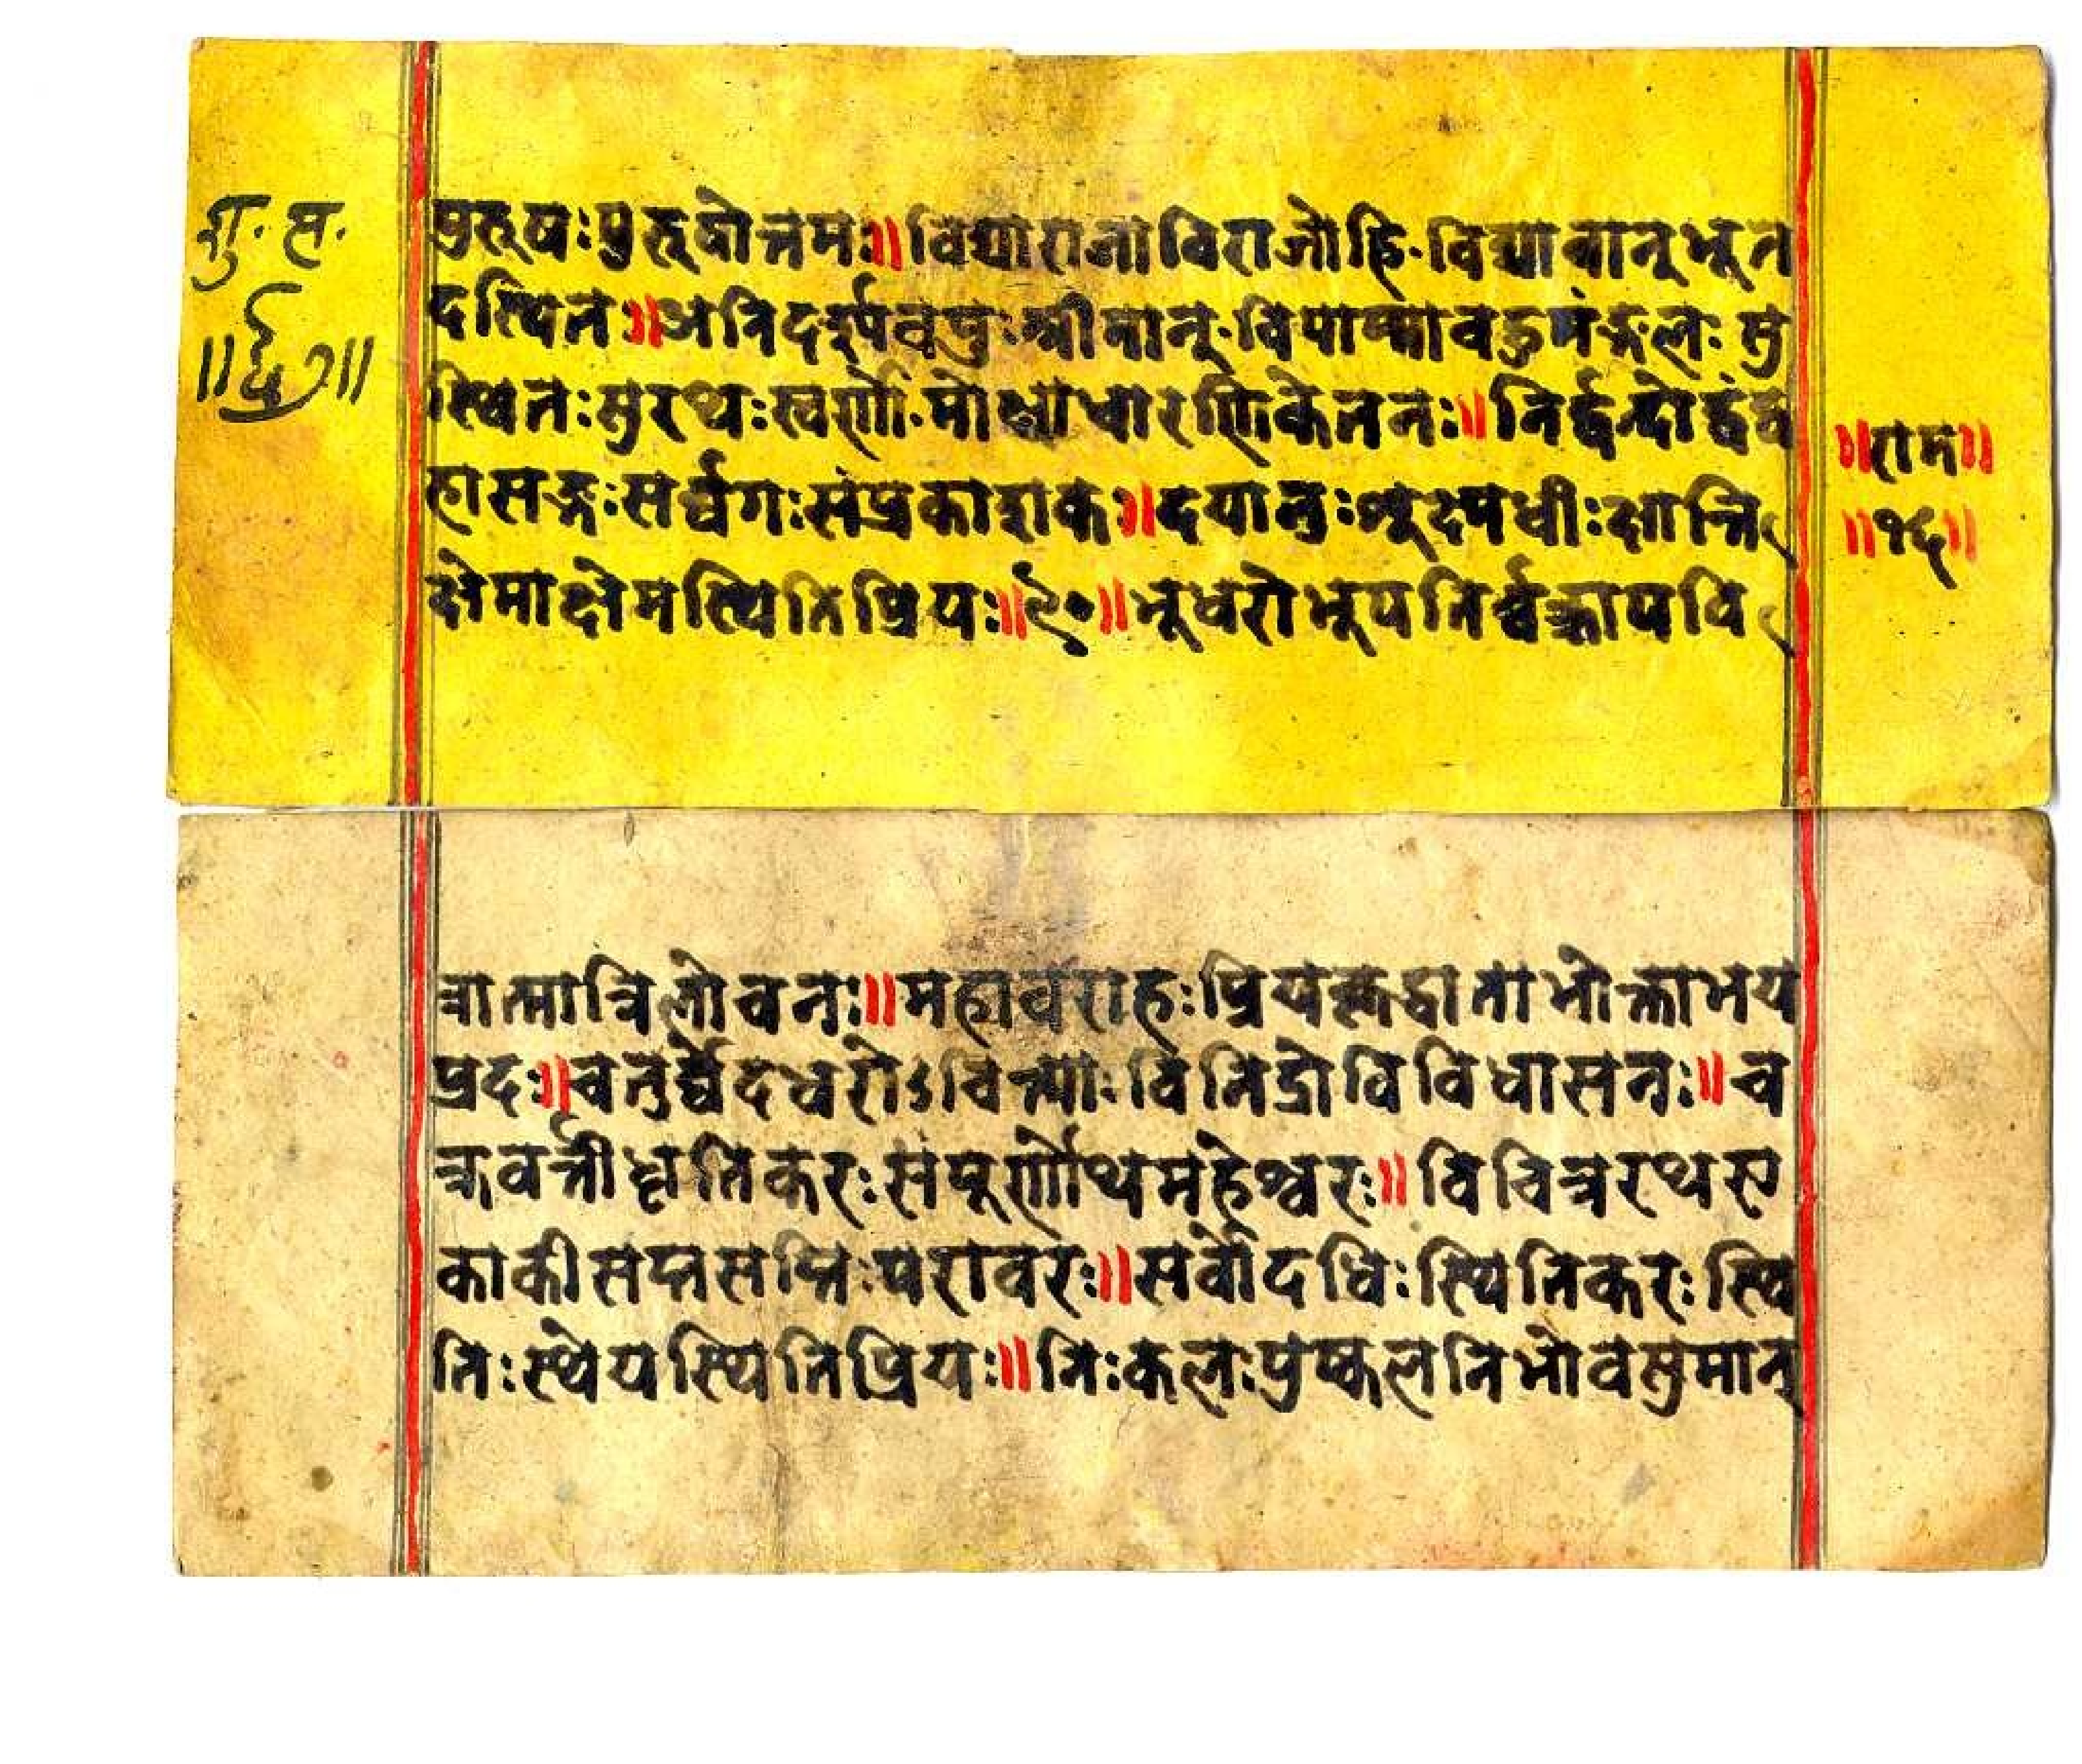 गु. स.
पुरूषः पुरूषोत्तमः ॥ विद्याराजाविराजोहि विद्यावान्भूत
दस्थितः ॥ अनिर्दर्श्पवपुः श्रीमान् विपाप्मावहुमंङ्गलः सु
स्थितः सुरथः स्वर्णो मोक्षाधारणिकेतनः ॥ निर्द्वन्दोद्वंद्व
हासङ्गः सर्व्वगः संप्रकाशकः ॥ दयालुः शूक्ष्मधीः क्षान्ति
क्षेमाक्षेमस्थितिप्रियः ॥ ९० ॥ भूधरोभूपतिर्व्वक्तापवि
॥ राम ॥
॥ १६ ॥
त्रात्मात्रिलोचनः ॥ महावराहः प्रियकृद्धाताभोक्ताभय
प्रदः ॥ चतुर्व्वेदधरोऽचिन्त्याः विनिद्रोविविधासनः ॥ च
क्रवर्त्तीधृतिकरः संपूर्णोथमहेश्वरः ॥ विचित्ररथए
काकीसप्तसप्तिः परावरः ॥ सर्वोदधिः स्थितिकरः स्थि
तिः स्थेयस्थितिप्रियः ॥ निःकलः पुष्कलनिभोवसुमान्